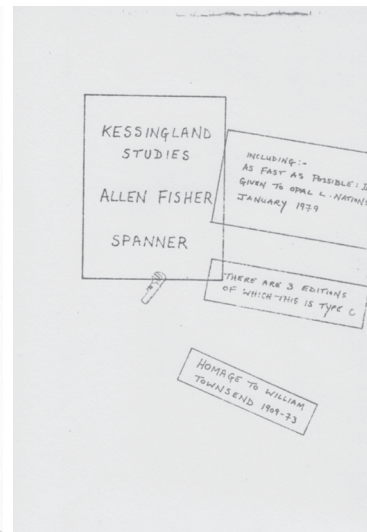 KESSINGLAND
STUDIES
ALLEN FISHER
SPANNER
INCLUDING:-
AS FAST AS POSSIBLE:
GIVEN TO OPAL L. NATIONS
JANUARY 1979
THERE ARE 3 EDITIONS
OF WHICH THIS IS TYPE C
HOMAGE TO WILLIAM
TOWNSEND 1909-73